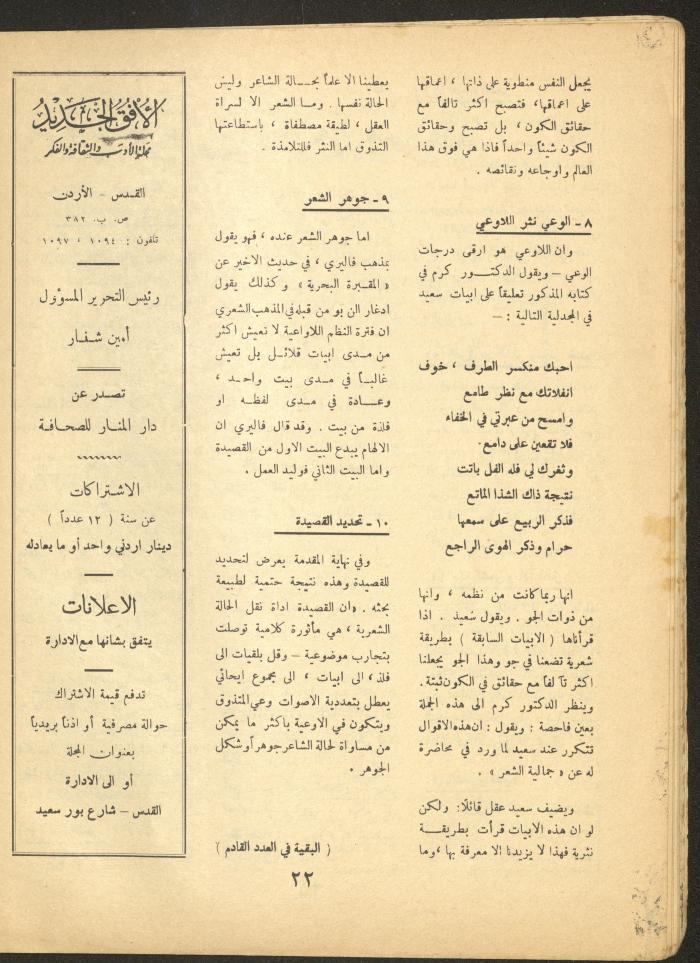 يجعل النفس منطوية على ذاتها ، اعماقها
على اعماقها، فتصبح اكثر تالفاً مع
حقائق الكون ، بل تصبح وحقائق
الكون شيئاً واحداً فاذا هي فوق هذا
العالم واوجاعه ونقائصه .
٨ ـ الوعي نثر اللاوعي
وان اللاوعي هو ارقى درجات
الوعي – ويقول الدكتـــور كرم في
كتابه المذكور تعليقاً على ابيات سعيد
في المجدلية التالية : –
احبك منكسر الطرف ، خوف
انفلاتك مع نظر طامع
وامسح من عبرتي في الخفاء
فلا تقعين على دامع·
وثغرك لي فله الفل باتت
نتيجة ذاك الشذا الماتع
فذكر الربيع على سمعها
حرام وذكر الهوى الراجع
انها ربما كانت من نظمه ، وانها
من ذوات الجو . ويقول سُعيد . اذا
قرأناها ( الابيات السابقة ) بطريقة
شعرية تضعنا في جو وهذا الجو يجعلنا
اكثر تآلفاً مع حقائق في الكون ثبتة .
وينظر الدكتور كرم الى هذه الجملة
بعين فاحصة : ويقول : ان هذه الاقوال
تتكرر عند سعيد لما ورد في محاضرة
له عن « جمالية الشعر » .
ويضيف سعيد عقل قائلا: ولكن
لو ان هذه الابيات قرأت بطريقـــة
نثرية فهذا لا يزيدنا الا معرفة بها ، وما
يعطينا الا علماً بحـــالة الشاعر وليس
الحالة نفسها . ومـا الشعر الا لسراة
العقل ، لطيقة مصطفاة ، باستطاعتها
التذوق اما النثر فللتلامذة .
٩ ـ جوهر الشعر
اما جوهر الشعر عنده ، فهو يقول
بمذهب فاليري ، في حديث الاخير عن
« المقبرة البحرية » وكذلك يقول
ادغار الن بو من قبله في المذهب الشعري
ان فترة النظم اللاواعية لا تعيش اكثر
من مـدى ابيات قلائـل بل تعيش
غالبـاً في مـدى بيت واحـد ،
وعـادة في مدى لفظـه او
فلذة من بيت . وقد قال فاليري ان
الالهام يبدع البيت الاول من القصيدة
واما البيت الثاني فوليد العمل .
١٠ ـ تحديد القصيدة
وفي نهاية المقدمة يعرض لتحديد
للقصيدة وهذه نتيجة حتمية لطبيعة
بحثه . «ان القصيدة اداة نقل الحالة
الشعرية ، هي مأثورة كلامية توصلت
بتجارب موضوعية – وقل بلقيات الى
فلذ، الى ابيات ، الى مجموع ايحائي
يعطل بتعددية الاصوات وعي المتذوق
ويتكون في الاوعية باكثر ما يمكن
من مساواة لحالة الشاعر جوهراً وشكل
الجوهر .
( البقية في العدد القادم )
الأفق الجديد
مجلة الأدب والثقافة والفكر
القـدس - الأردن
ص. ب. ٣٨٢
تلفون : ١٠٩٤ ، ١٠٩٧
رئيس التحرير المسؤول
أمين شنـار
تصـدر عن
دار المنـار للصحـافـة
الاشتراكات
عن سنة ( ١٢ عدداً )
دينار اردني واحد أو ما يعادله
الاعلانات
يتفق بشانها مع الادارة
تدفع قيمة الاشتراك
حوالة مصرفية أو اذناً بريدياً
بعنوان المجلة
أو الى الادارة
القدس – شارع بور سعيد
٢٢